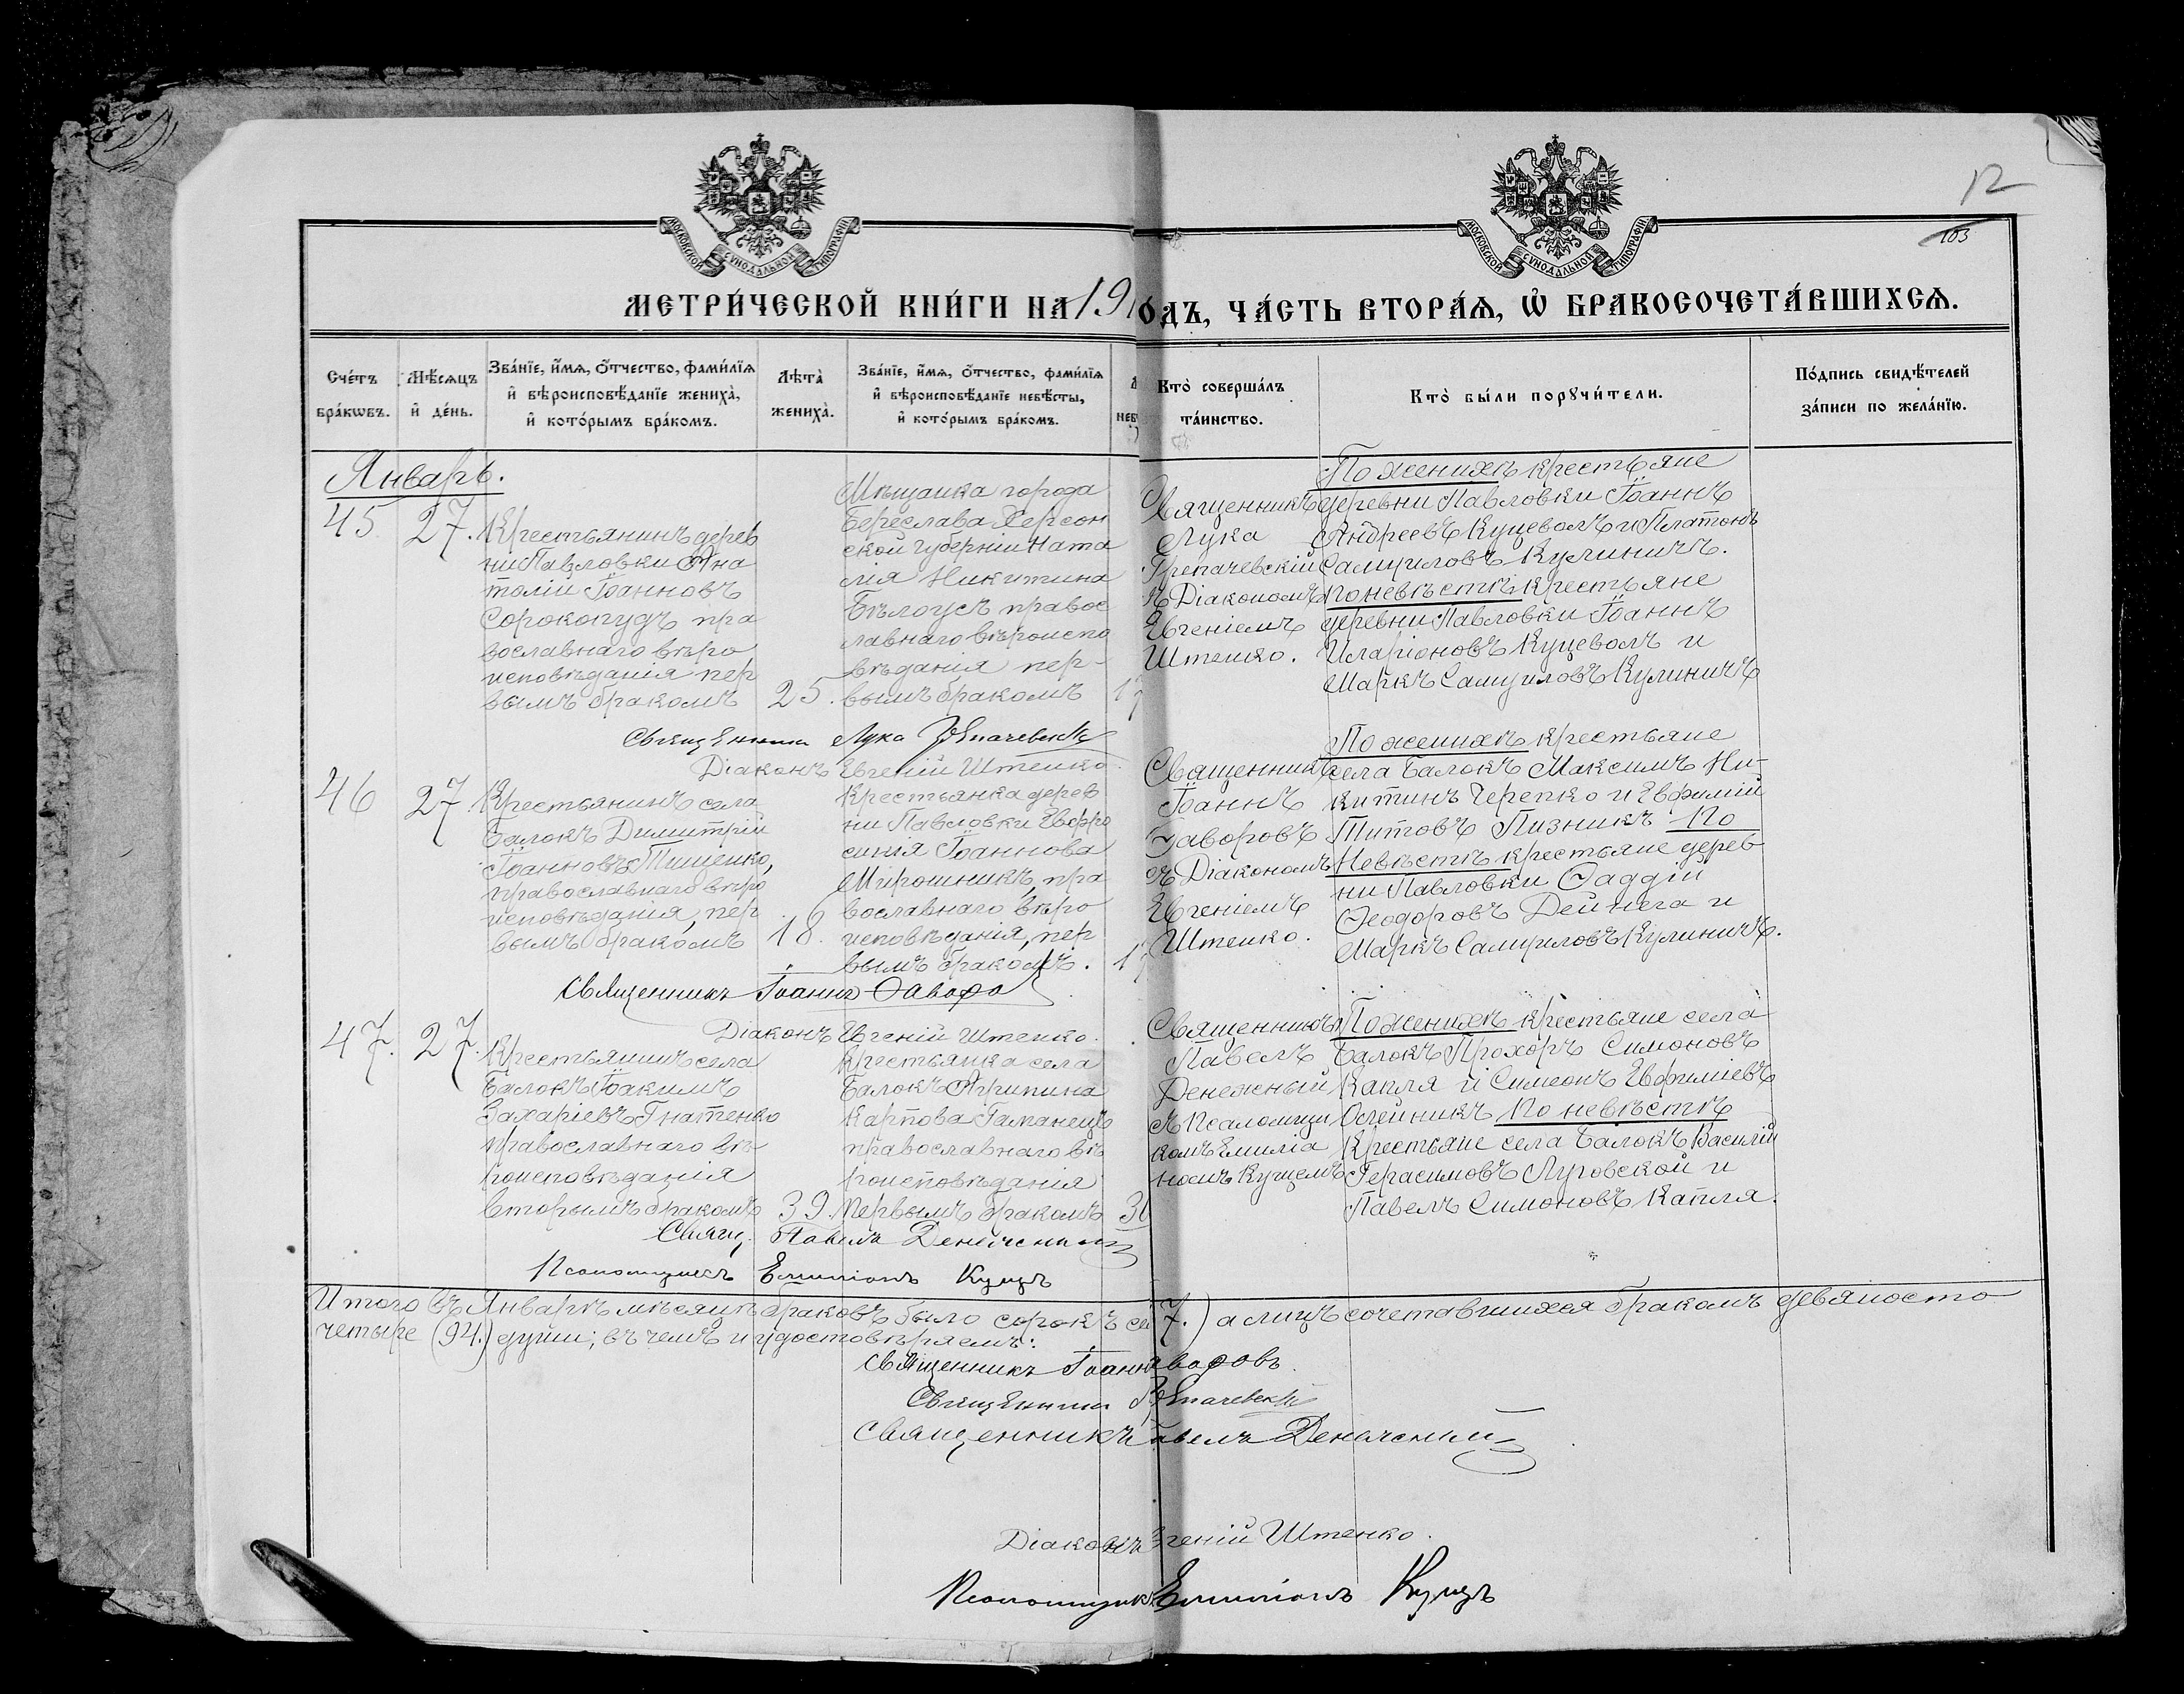 12
103
МОСКОВСКОЙ СУНОДАЛЬНОЙ ТИПОГРАФІИ
МОСКОВСКОЙ СУНОДАЛЬНОЙ ТИПОГРАФІИ
МЕТРИ́ЧЕСКОЙ КНИ́ГИ НА 19
ОДЪ, ЧА́СТЬ ВТОРА́Я, Ѡ҆ БРАКОСОЧЕТА́ВШИХСѦ.
Сче́тъ бра́кѡвъ.
Мѣ́сѧцъ и҆ де́нь.
Зва́нїе, и҆́мѧ, ѻ҆́тчество, фами́лїѧ
и҆ вѣроисповѣ́данїе жениха̀,
и҆ кото́рымъ бра́комъ.
Лѣта̀ жениха̀.
Зва́нїе, и҆́мѧ, ѻ҆́тчество, фами́лїѧ
и҆ вѣроисповѣ́данїе невѣ́сты,
и҆ кото́рымъ бра́комъ.
Кто̀ соверша́лъ та́инство.
Кто̀ бы́ли порꙋчи́тели.
По́дпись свидѣ́телей за́писи по жела́нїю.
Январь.
45 27.
Крестьянинъ дерев
ни Павловки Ана
толій Іоанновъ
Сорокопудъ пра
вославнаго вѣро
исповѣданія пер
вымъ бракомъ
25.
Мѣщанка города
Береслава Херсон
ской губерніи Ната
лія Никитина
Бѣлоусъ правос
лавнаго вѣроиспо
вѣданія пер-
вымъ бракомъ
Священникъ
Лука
Грепачевскій
съ Діакономъ
Евгеніемъ
Штенко.
По женихѣ крестьяне
деревни Павловки Іоаннъ
Андреевъ Куцеволъ и Платонъ
Самуиловъ Кулиничъ.
По невѣстѣ крестьяне
деревни Павловки Іоаннъ
Иларіоновъ Куцеволъ и
Маркъ Самуиловъ Кулиничъ
Священникъ Лука Грепачевскій
Діаконъ Евгеній Штенко.
46 27.
Крестьянинъ села
Балокъ Димитрій
Іоанновъ Пищенко,
православнаго вѣро
исповѣданія, пер
вымъ бракомъ
18.
Крестьянка дерев
ни Павловки Евфро
синія Іоаннова
Мирошникъ, пра
вославнаго вѣро
исповѣданія, пер
вымъ бракомъ.
Священникъ
Іоаннъ
Ѳаворовъ
съ Діакономъ
Евгеніемъ
Штенко.
По женихѣ крестьяне
села Балокъ Максимъ Ни-
китинъ Черепко и Евфимій
Титовъ Пизникъ. По
Невѣстѣ крестьяне дерев
ни Павловки Ѳаддій
Ѳеодоровъ Дейнега и
Маркъ Самуиловъ Кулиничъ.
Священникъ Іоаннъ Ѳаворо
Діаконъ Евгеній Штенко.
47. 27.
Крестьянинъ села
Балокъ Іоакимъ
Захаріевъ Гнатенко
православнаго вѣ-
роисповѣданія
вторымъ бракомъ
39.
Крестьянка села
Балокъ Агрипина
Карпова Гаманецъ
православнаго вѣ
роисповѣданія
первымъ бракомъ
Священникъ
Павелъ
Денежный
съ Псаломщи
комъ Емиліа
номъ Куцемъ
По женихѣ крестьяне села
Балокъ Прохоръ Симоновъ
Капля и Симеонъ Евфиміевъ
Олейникъ По невѣстѣ
Крестьяне села Балокъ Василій
Герасимовъ Луговской и
Павелъ Симоновъ Капля.
Свящ. Павелъ Денежный
Псаломщикъ Емиліанъ Куцъ
Итого въ Январѣ мѣсяцѣ браковъ было сорокъ се 7.) а лицъ сочетавшихся бракомъ девяносто
четыре (94.) души; въ чемъ и удостовѣряемъ:
Священникъ Іоаннъ аворовъ.
Священникъ Грепачевскій
Священникъ Павелъ Денежный
Діаконъ Евгеній Штенко.
Псаломщикъ Емиліанъ Куцъ